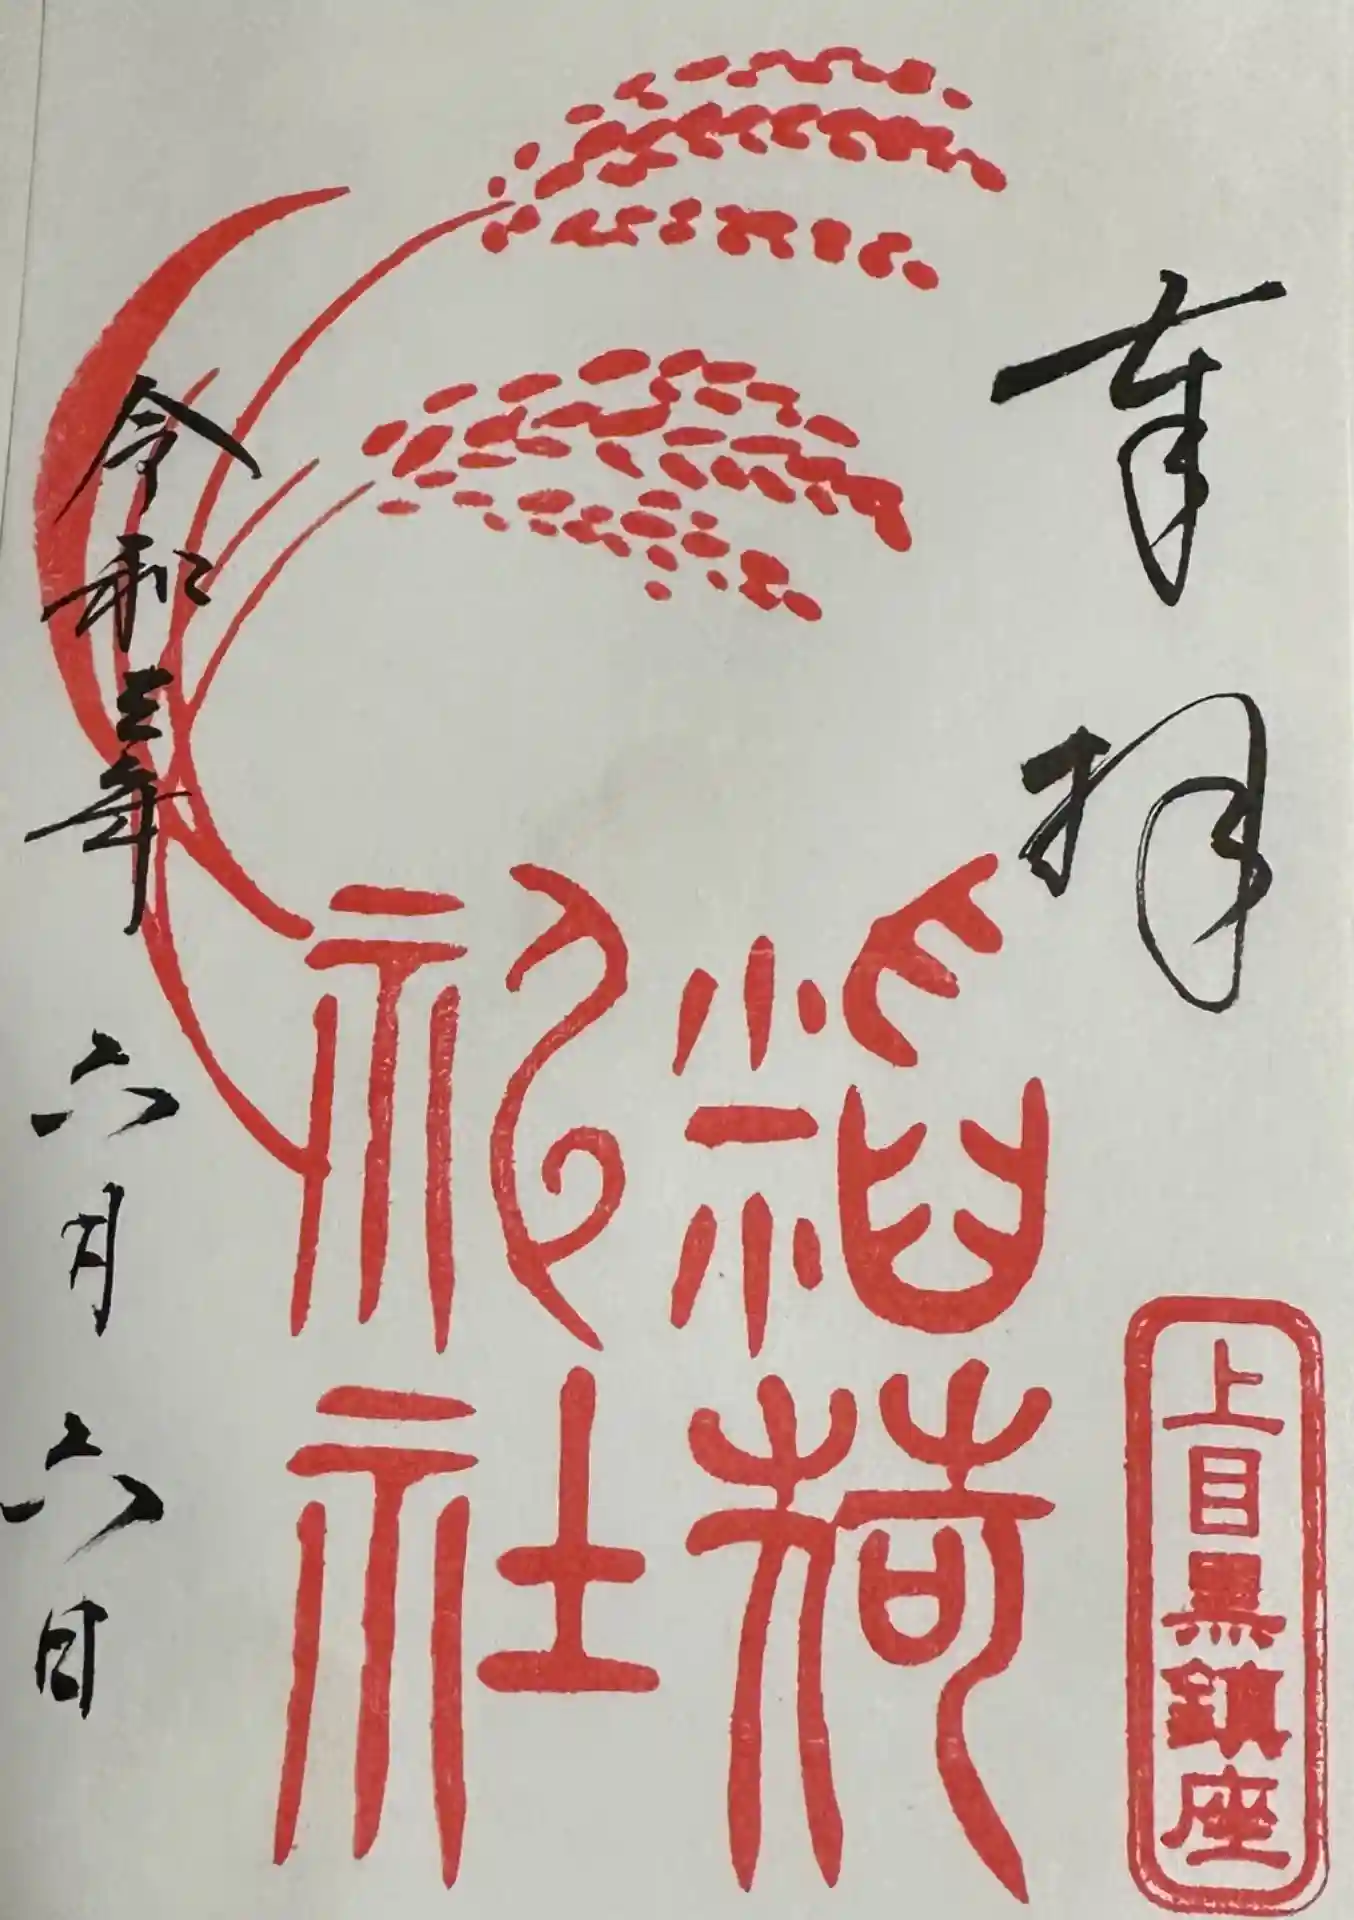 奉拝
上目黒鎮座
稲荷
神社
令和三年 六月六日